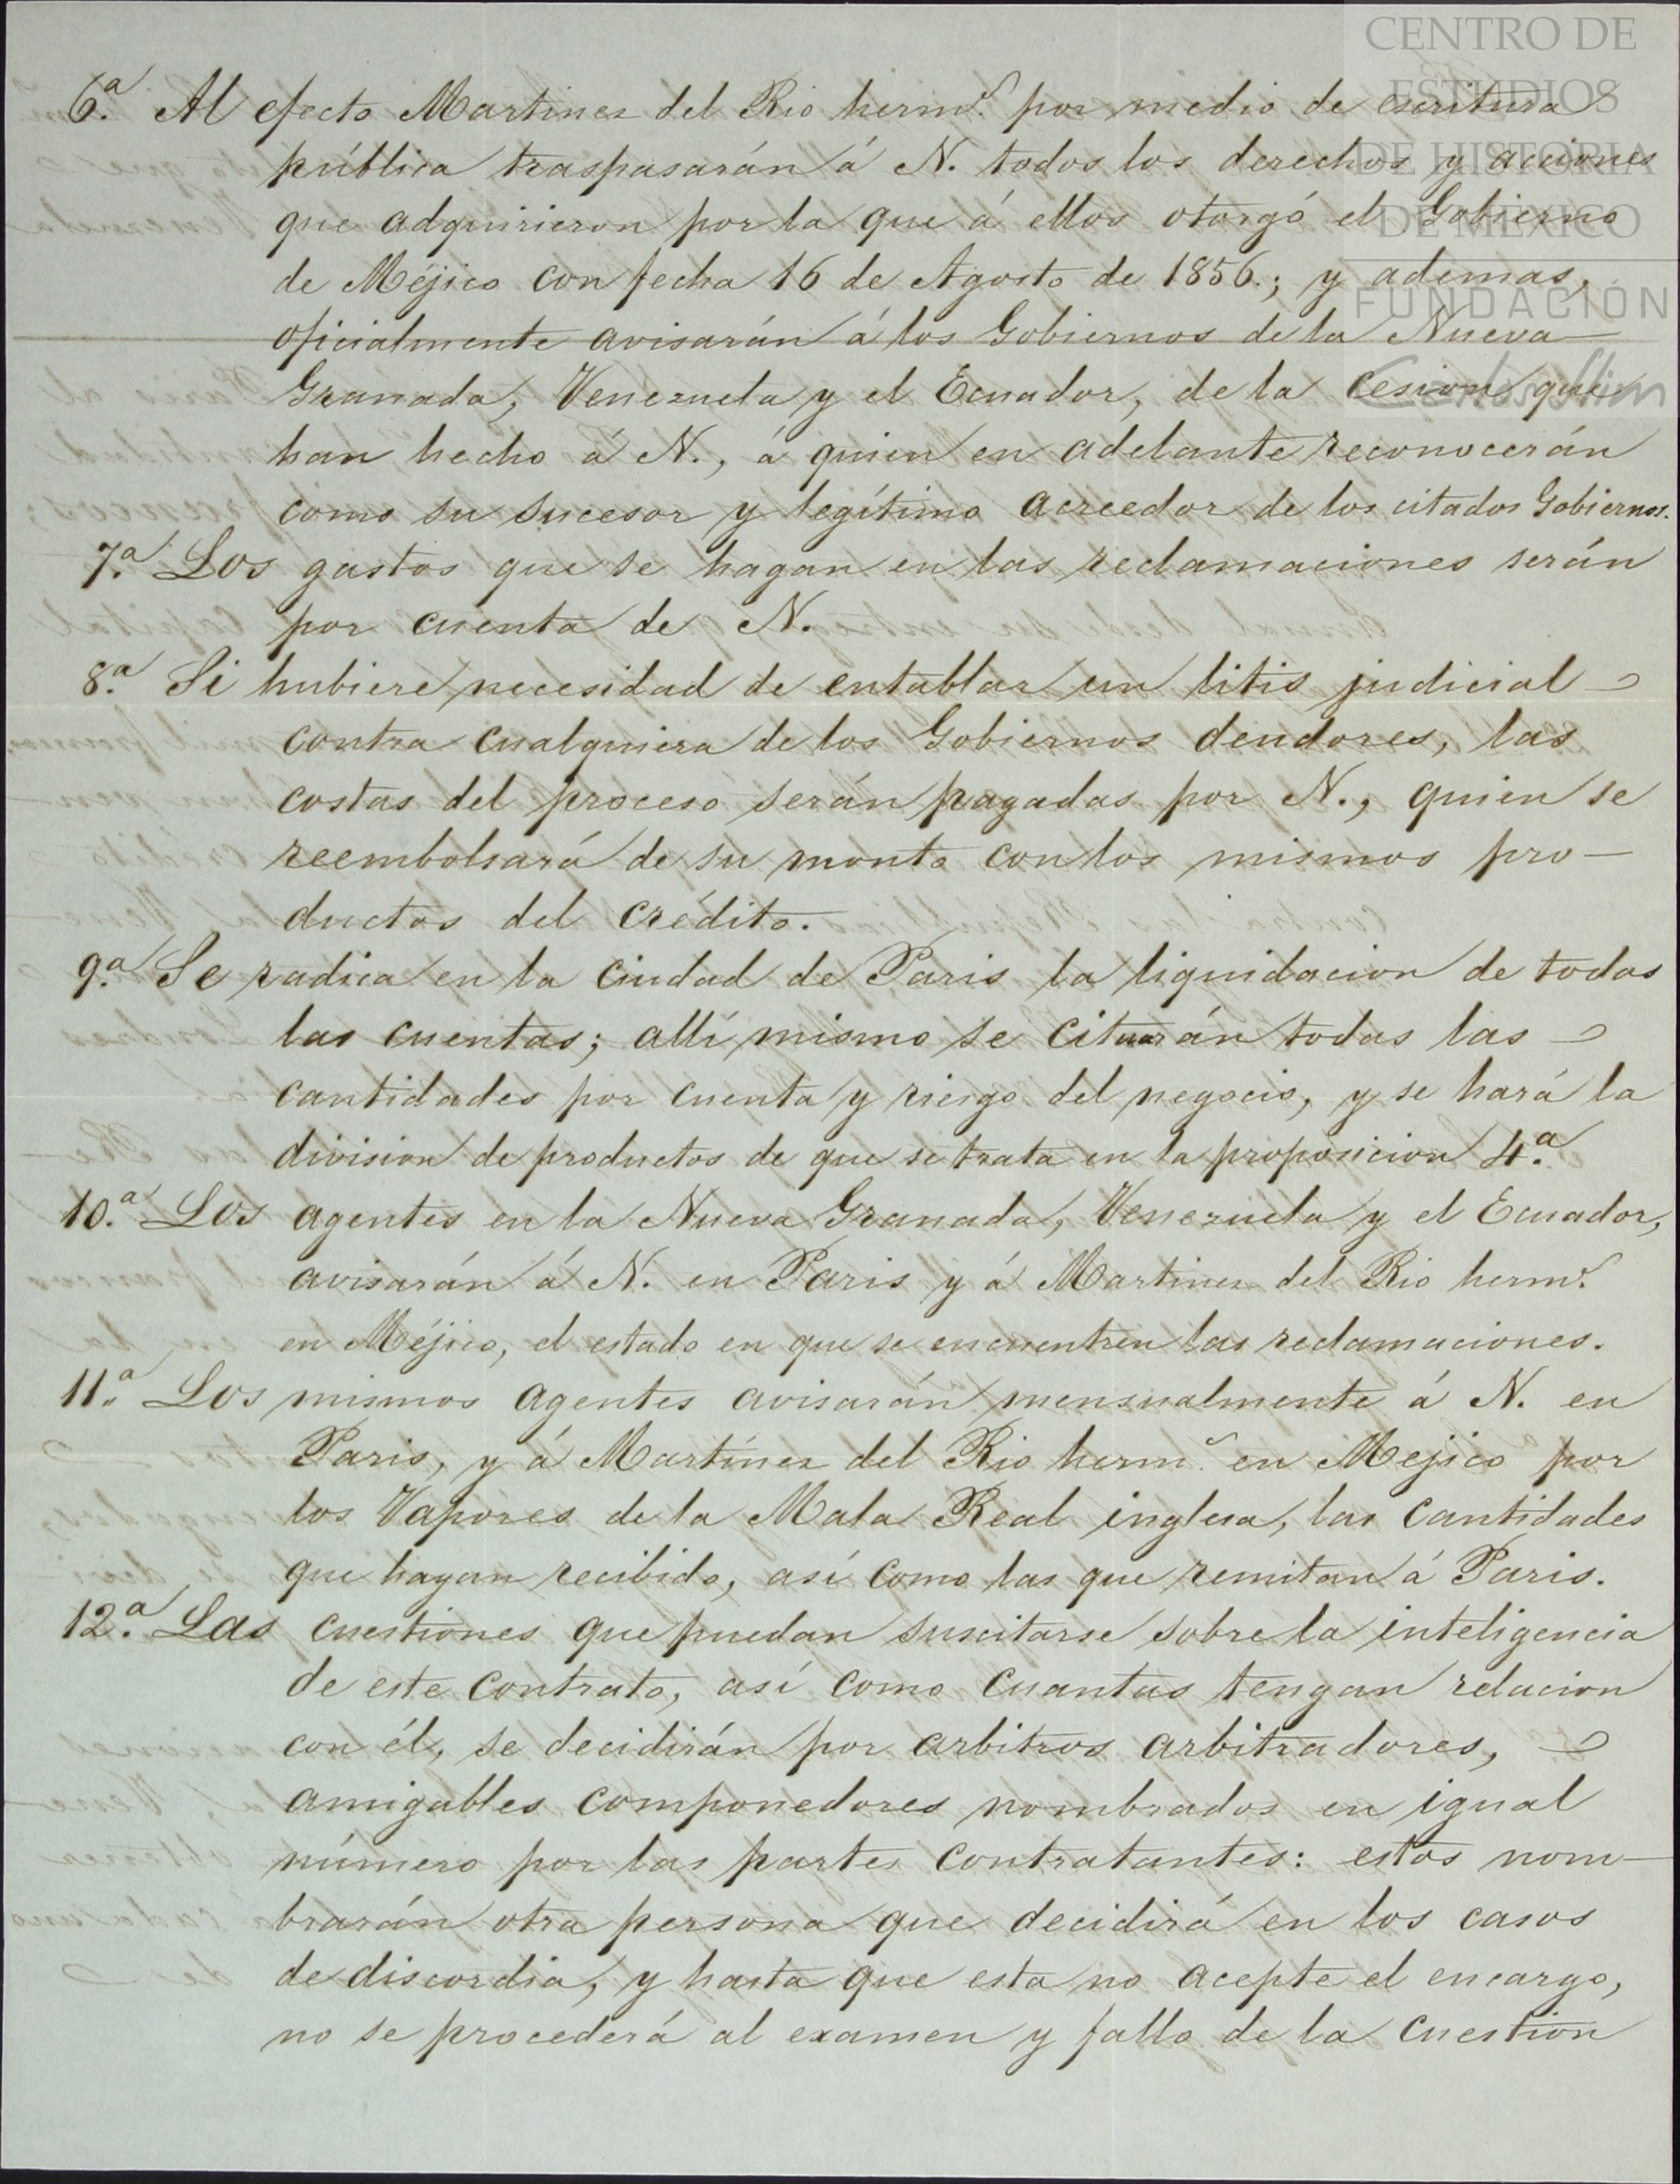 CENTRO DE
ESTUDIOS
DE HISTORIA
DE MÉXICO
FUNDACIÓN
Carlos Slim
6.ª Al efecto Martinez del Rio herm.ˢ por medio de escritura
pública traspasarán á N. todos los derechos y acciones
que adquirieron por la que á ellos otorgó el Gobierno
de Méjico con fecha 16 de Agosto de 1856.; y ademas,
oficialmente avisarán á los Gobiernos de la Nueva
Granada, Venezuela y el Ecuador, de la cesion que
han hecho á N., á quien en adelante reconocerán
como su sucesor y legítimo acreedor de los citados Gobiernos.
7.ª Los gastos que se hagan en las reclamaciones serán
por cuenta de N.
8.ª Si hubiere necesidad de entablar un litis judicial
contra cualquiera de los Gobiernos deudores, las
costas del proceso serán pagadas por N., quien se
reembolsará de su monto con los mismos pro-
ductos del crédito.
9.ª Se radica en la ciudad de Paris la liquidacion de todas
las cuentas; allí mismo se cituarán todas las
cantidades por cuenta y riesgo del negocio, y se hará la
division de productos de que se trata en la proposicion 4.ª
10.ª Los agentes en la Nueva Granada, Venezuela y el Ecuador,
avisarán á N. en Paris y á Martinez del Rio herm.ˢ
en Méjico, el estado en que se encuentren las reclamaciones.
11.ª Los mismos agentes avisarán mensualmente á N. en
Paris, y á Martínez del Rio herm.ˢ en Mejico por
los Vapores de la Mala Real inglesa, las cantidades
que hayan recibido, así como las que remitan á Paris.
12.ª Las cuestiones que puedan suscitarse sobre la inteligencia
de este contrato, así como cuantas tengan relacion
con él, se decidirán por arbitros arbitradores,
amigables componedores nombrados en igual
número por las partes contratantes: estos nom-
brarán otra persona que decidirá en los casos
de discordia, y hasta que esta no acepte el encargo,
no se procederá al examen y fallo de la cuestion